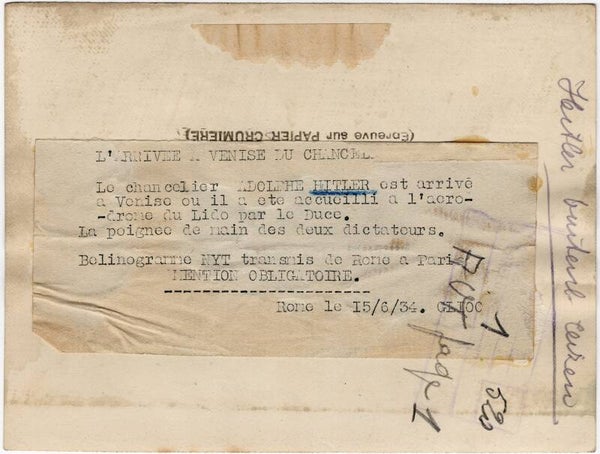 (Épreuve sur PAPIER CRUMIÈRE)
L'ARRIVEE A VENISE DU CHANCEL
Le chancelier ADOLPHE HITLER est arrivé
a Venise ou il a ete accueilli a l'aero-
drome du Lido par le Duce.
La poignee de main des deux dictateurs.
Belinogramme NYT transmis de Rome a Paris
MENTION OBLIGATOIRE.
Rome le 15/6/34. CLIOC
1
page 1
Hitler